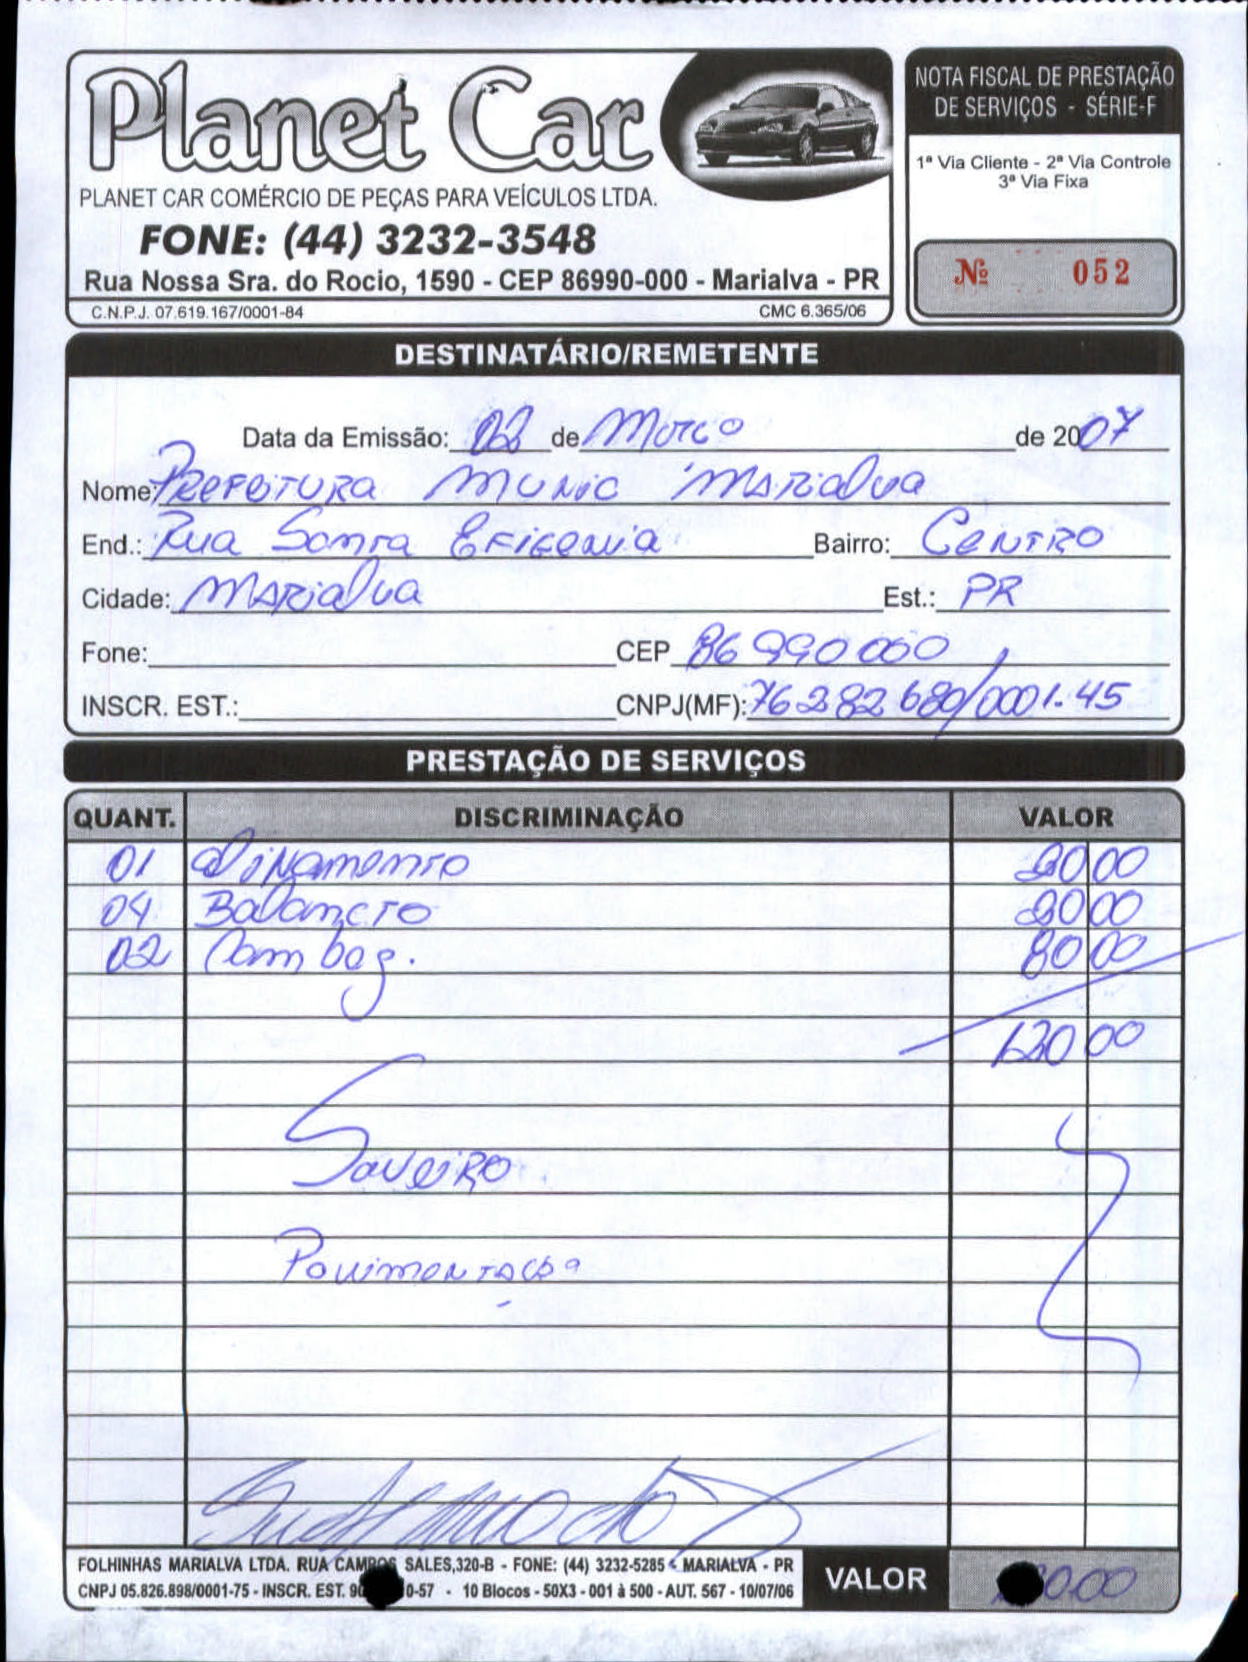 Planet Car
PLANET CAR COMÉRCIO DE PEÇAS PARA VEÍCULOS LTDA.
FONE: (44) 3232-3548
Rua Nossa Sra. do Rocio, 1590 - CEP 86990-000 - Marialva - PR
C.N.P.J. 07.619.167/0001-84 CMC 6.365/06
NOTA FISCAL DE PRESTAÇÃO
DE SERVIÇOS - SÉRIE-F
1ª Via Cliente - 2ª Via Controle
3ª Via Fixa
Nº 052
DESTINATÁRIO/REMETENTE
Data da Emissão: 02 de Março de 2007
Nome: Prefeitura Munic Marialva
End.: Rua Santa Efigenia Bairro: Centro
Cidade: Marialva Est.: PR
Fone: CEP 86990000
INSCR. EST.: CNPJ(MF): 76282680/0001.45
PRESTAÇÃO DE SERVIÇOS
QUANT. DISCRIMINAÇÃO VALOR
01 Alinamento 20 00
04 Balanceto 20 00
02 Cambag. 80 00
120 00
Saveiro
Pavimentação
FOLHINHAS MARIALVA LTDA. RUA CAMPOS SALES,320-B - FONE: (44) 3232-5285 - MARIALVA - PR
CNPJ 05.826.898/0001-75 - INSCR. EST. 0-57 - 10 Blocos - 50X3 - 001 à 500 - AUT. 567 - 10/07/06
VALOR